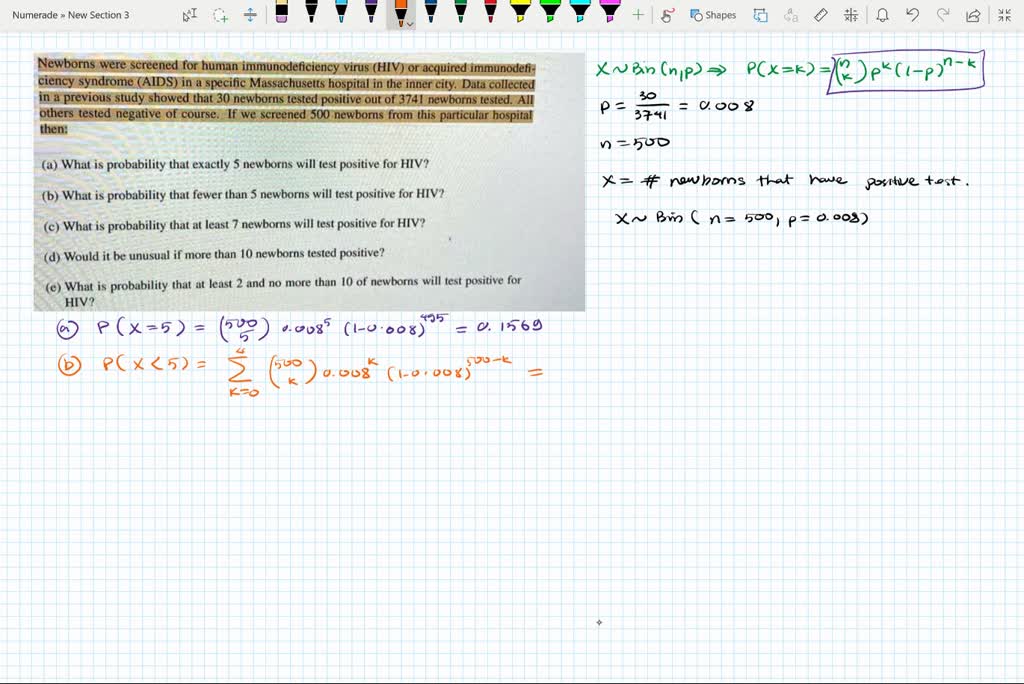 Numerade » New Section 3
Shapes
Newborns were screened for human immunodeficiency virus (HIV) or acquired immunodefi-
ciency syndrome (AIDS) in a specific Massachusetts hospital in the inner city. Data collected
in a previous study showed that 30 newborns tested positive out of 3741 newborns tested. All
others tested negative of course. If we screened 500 newborns from this particular hospital
then:
(a) What is probability that exactly 5 newborns will test positive for HIV?
(b) What is probability that fewer than 5 newborns will test positive for HIV?
(c) What is probability that at least 7 newborns will test positive for HIV?
(d) Would it be unusual if more than 10 newborns tested positive?
(e) What is probability that at least 2 and no more than 10 of newborns will test positive for
HIV?
X ~ Bin (n,p) ⇒ P(X=k) = (n k) p^k (1-p)^{n-k}
p = 30/3741 = 0.008
n = 500
X = # newborns that have positive test.
X ~ Bin ( n = 500, p = 0.008)
(a) P(X=5) = (500 5) 0.008^5 (1-0.008)^495 = 0.1569
(b) P(X<5) = ∑_{k=0}^4 (500 k) 0.008^k (1-0.008)^{500-k} =